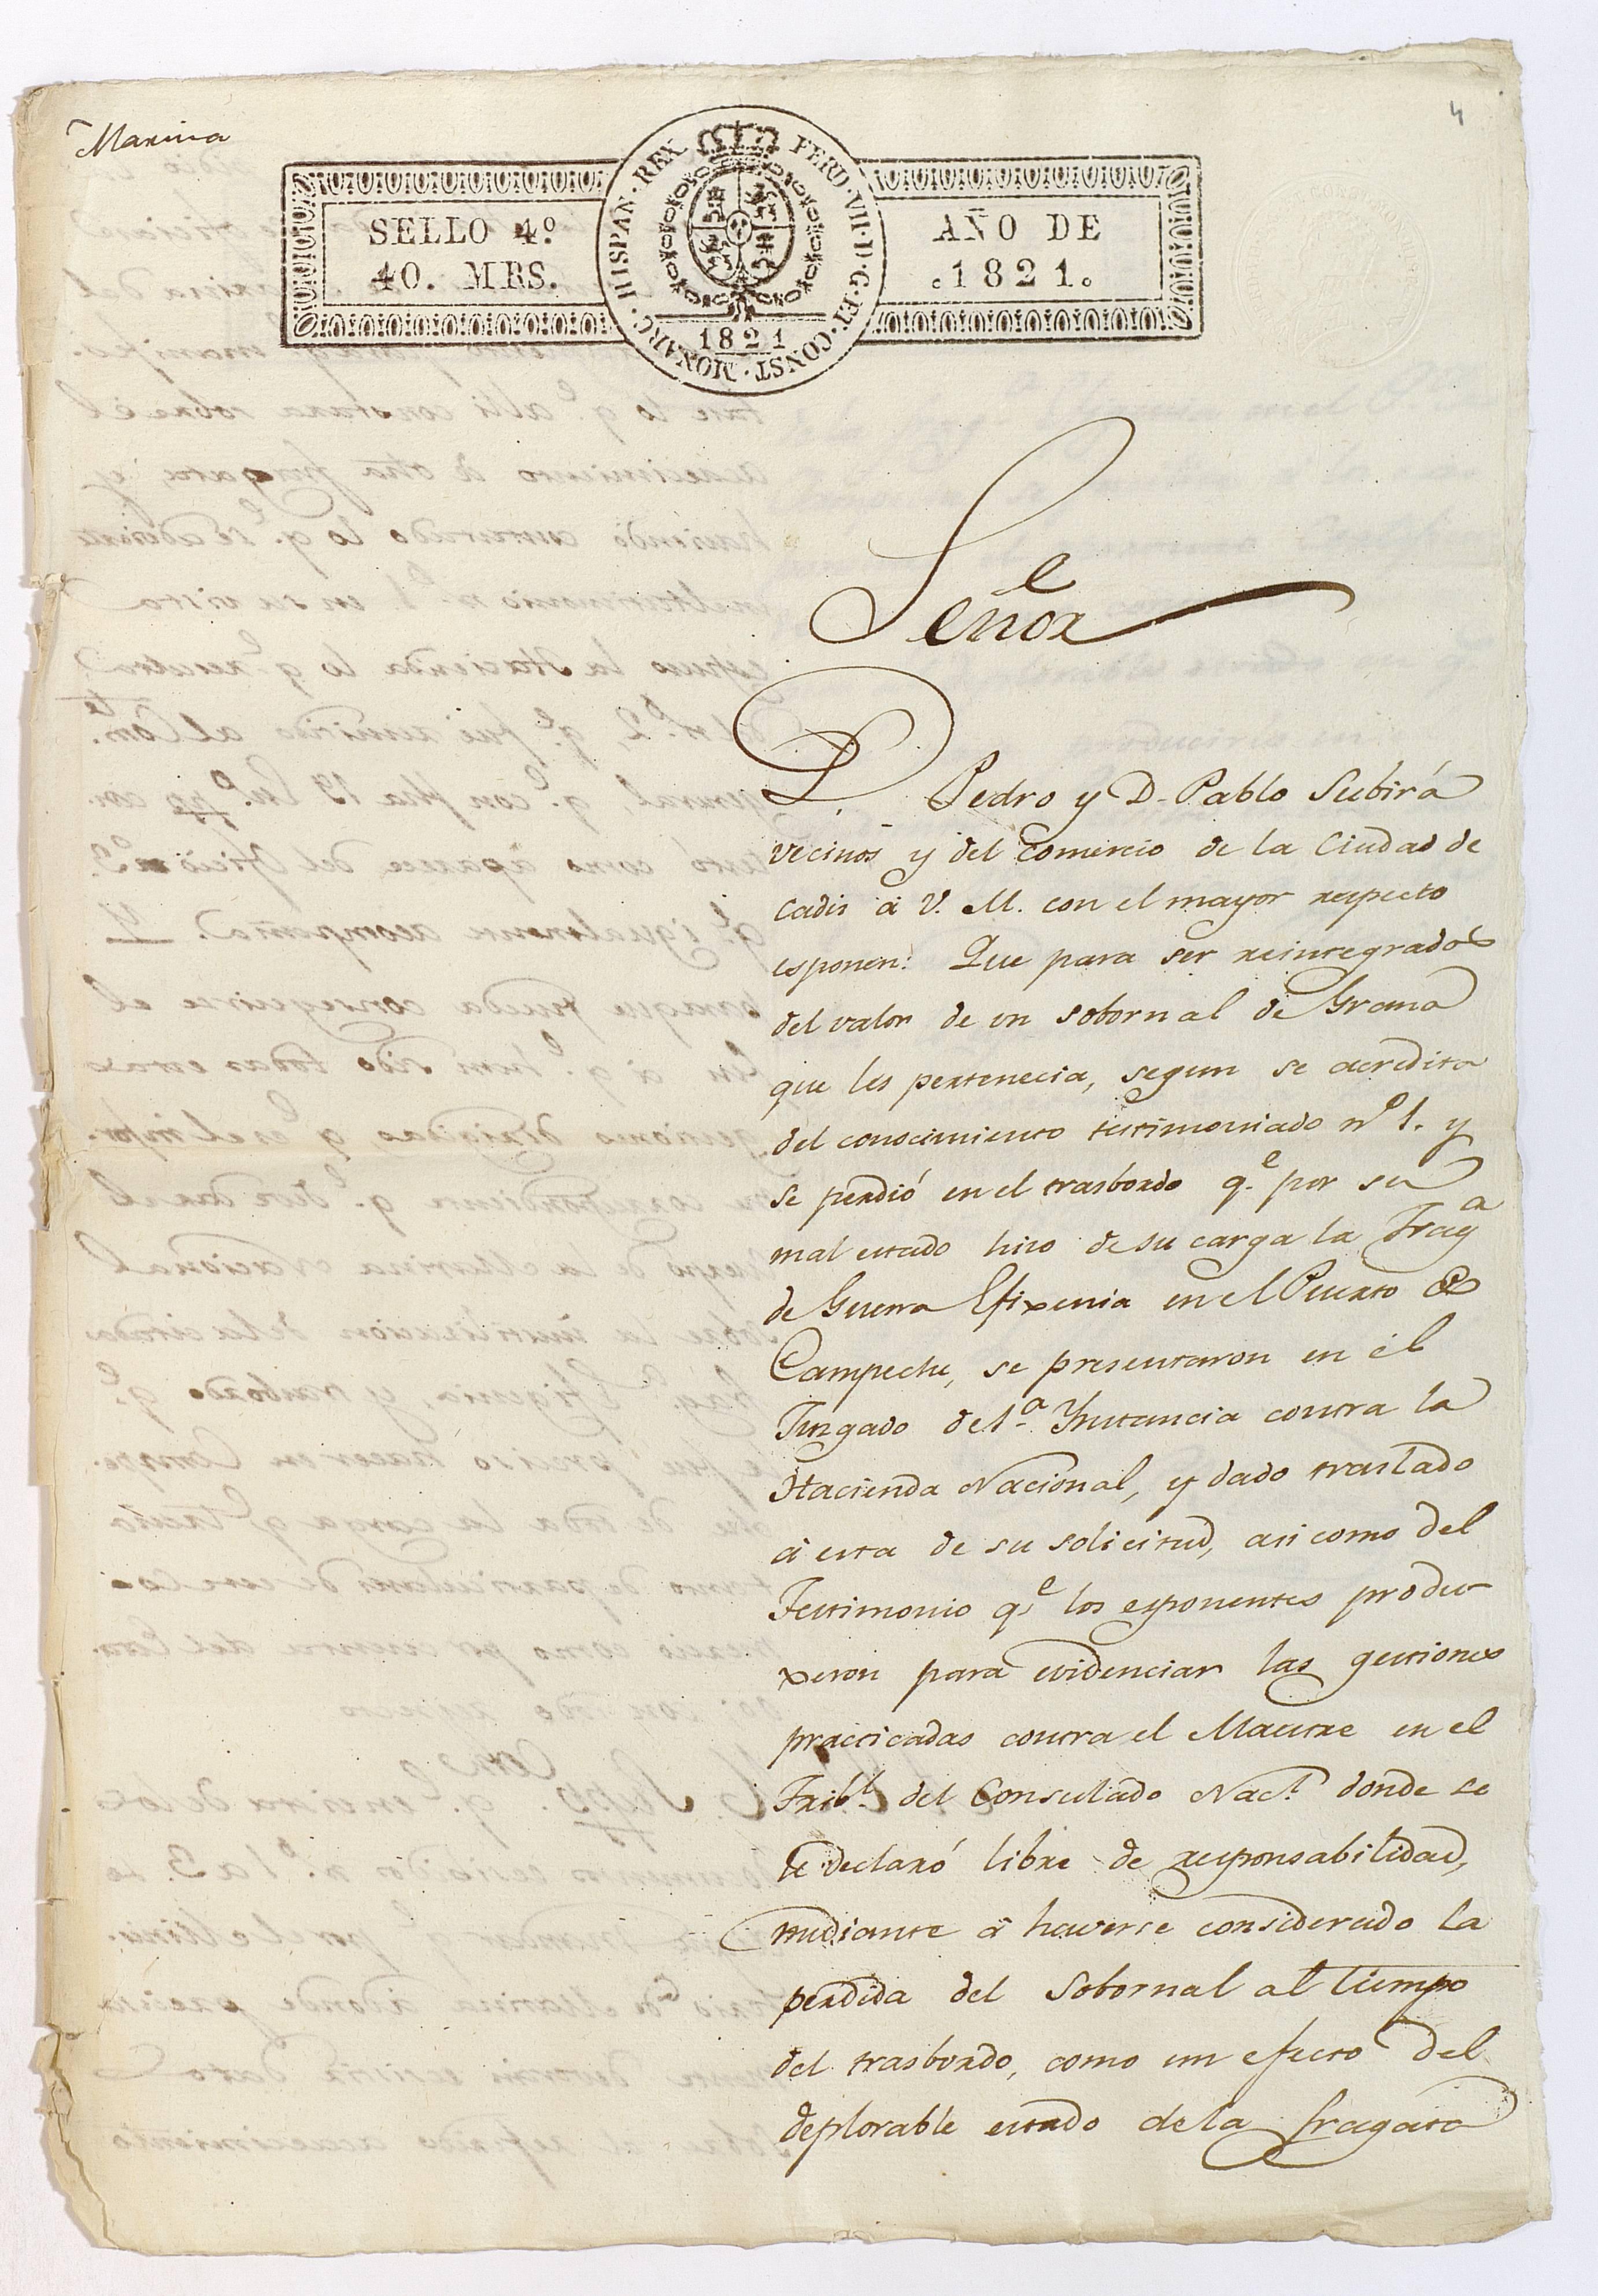 Marina
4
SELLO 4º
40. MRS.
HISPAN · REX
FERD · VII · D · G · ET · CONST · MONARC ·
1821
AÑO DE
.1821.
Señor
D. Pedro y D. Pablo Subirá
vecinos y del comercio de la Ciudad de
Cadis á V. M. con el mayor respecto
esponen: Que para ser reintegrados
del valor de un sobornal de Grana
que les pertenecia, segun se acredita
del conocimiento testimoniado nº 1. y
se perdió en el trasbordo q.e por su
mal estado hizo de su carga la Frag.a
de Guerra Efixenia en el Puerto de
Campeche, se presentaron en el
Juzgado de 1.a Ynstancia contra la
Hacienda Nacional, y dado traslado
á esta de su solicitud, asi como del
Testimonio q.e los esponentes produ-
xeron para evidenciar las gestiones
practicadas contra el Maestre en el
Trib.l del Consulado Nac.l donde se
le declaró libre de responsabilidad,
mediante á haverse considerado la
perdida del Sobornal al tiempo
del trasbordo, como un efecto del
deplorable estado de la fragata